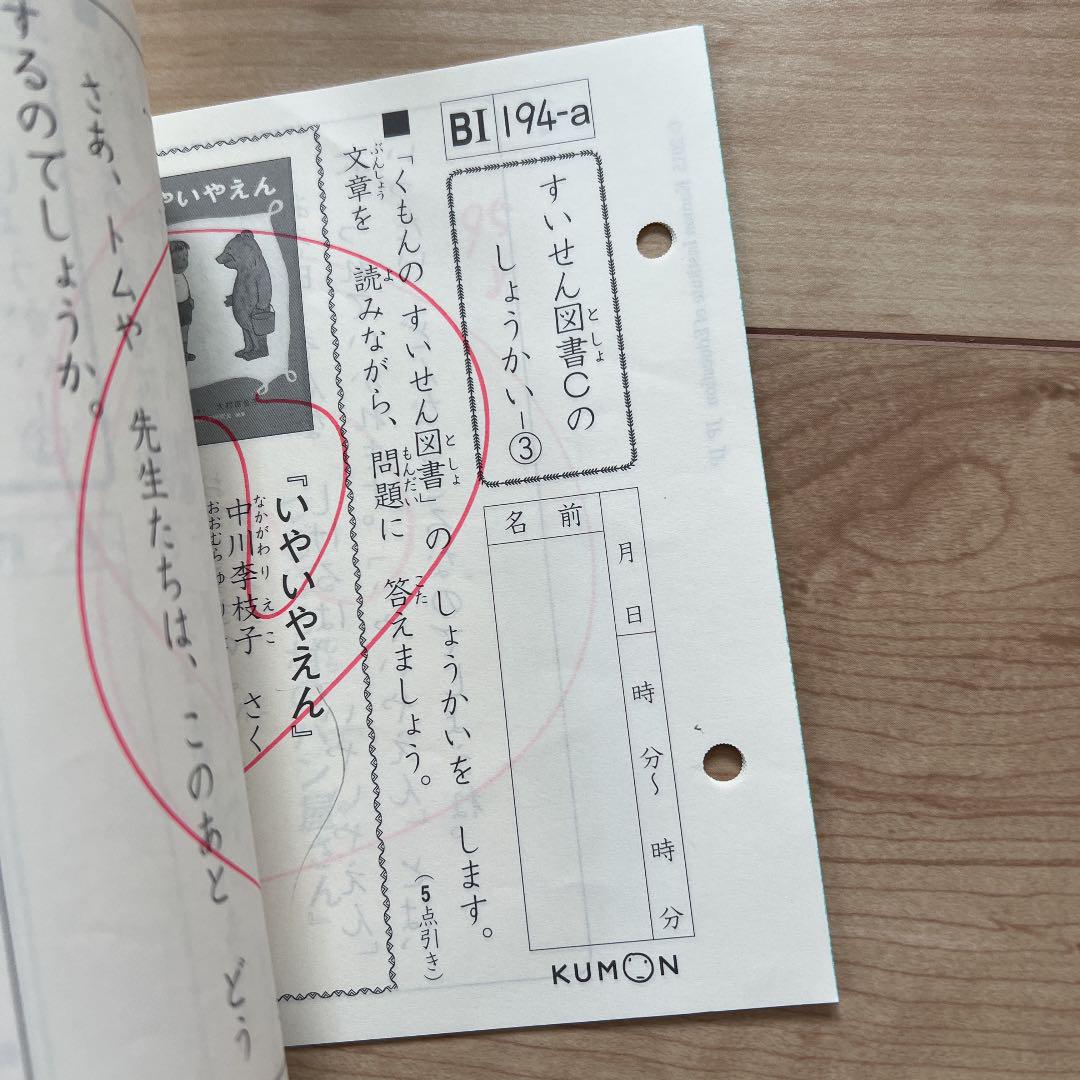 BI 194-a
すいせん図書Cの
しょうかい-③
としょ
名前
月 日
時 分〜 時 分
KUMON
■「くもんの すいせん図書」の しょうかいを します。
としょ
文章を 読みながら、問題に 答えましょう。
ぶんしょう よ もんだい こた
(5点引き)
やいやえん
『いやいやえん』
中川李枝子 さく
なかがわりえこ
おおむらゆり
さあ、トムや 先生たちは、このあと どう
するのでしょうか。